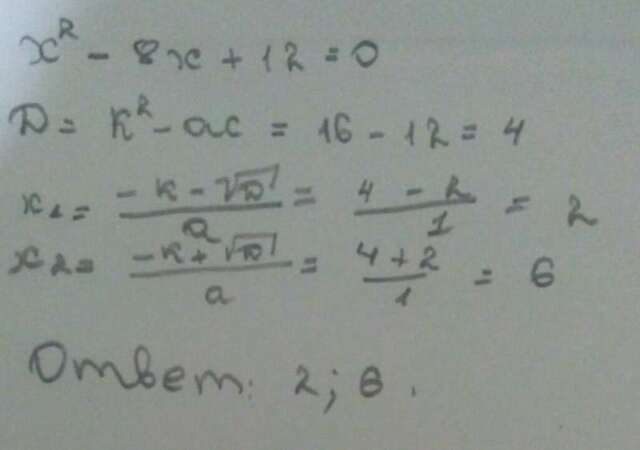 x² - 8x + 12 = 0
D = k² - ac = 16 - 12 = 4
x₁ = (-k - √D)/a = (4 - 2)/1 = 2
x₂ = (-k + √D)/a = (4 + 2)/1 = 6
Ответ: 2; 6.